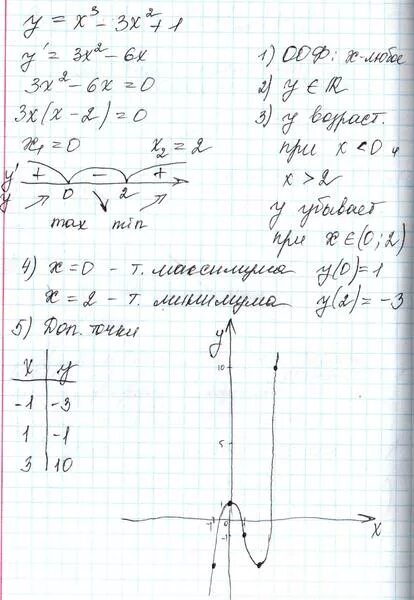 y = x³ - 3x² + 1
y' = 3x² - 6x
3x² - 6x = 0
3x(x - 2) = 0
x₁ = 0 x₂ = 2
y' + - +
y 0 2
max min
1) ООФ: x-любое
2) y ∈ ℝ
3) y возраст.
при x < 0 и
x > 2
y убывает
при x ∈ (0; 2)
4) x = 0 - т. максимума y(0) = 1
x = 2 - т. минимума y(2) = -3
5) Доп. точки
x y
-1 -3
1 -1
3 10
y
10
5
1
-1 0 1
-1
x